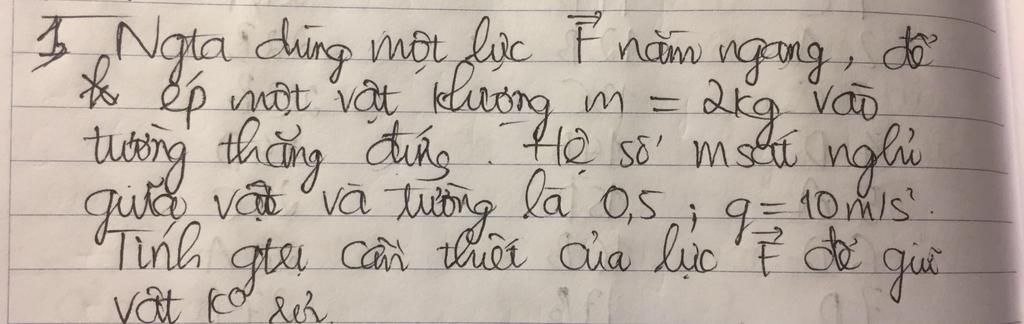 1, Ngta dùng một lực F nằm ngang, để
ép một vật klượng m = 2kg vào
tường thẳng đứng. Hệ số msát nghỉ
giữa vật và tường là 0,5 ; g = 10 m/s².
Tính gtrị cần thiết của lực F để giữ
vật k° rơi.